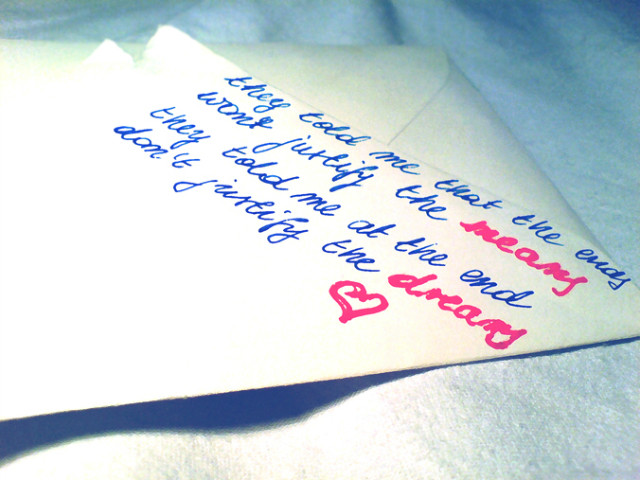 they told me that the ends
won't justify the means
they told me at the end
don't justify the dreams